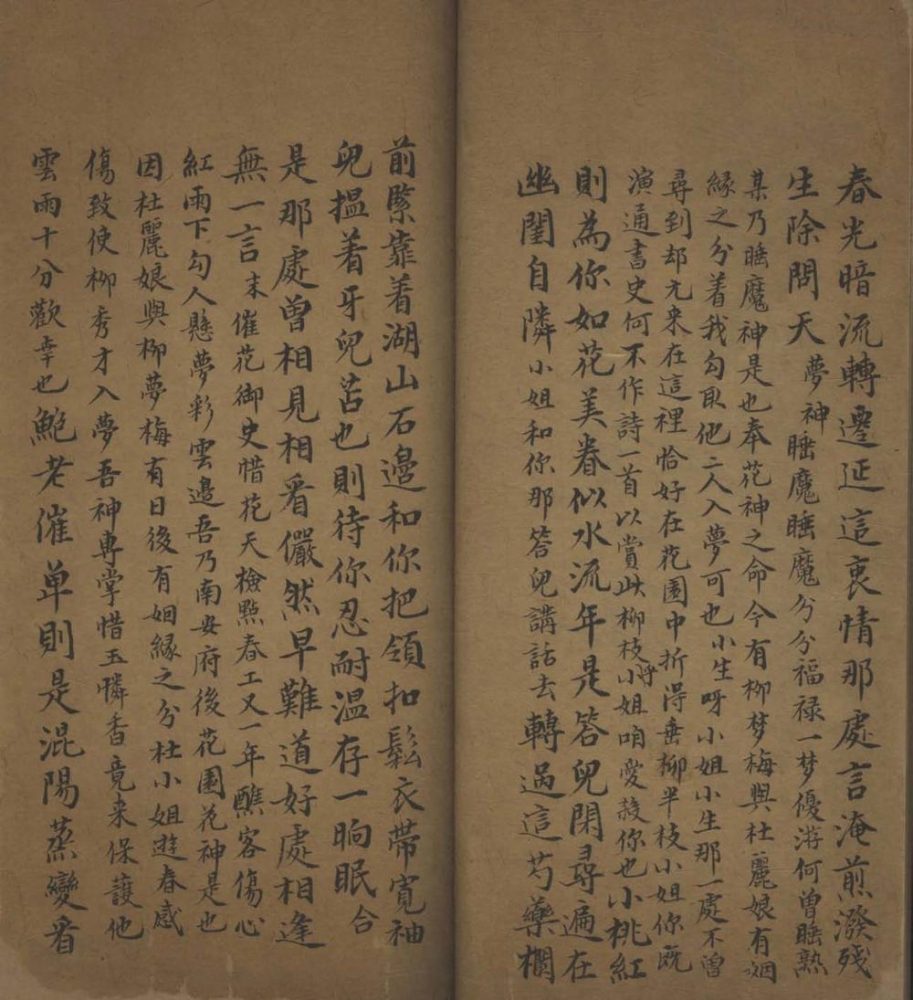 春光暗流轉遷延這衷情那處言淹煎潑殘
生除問天夢神睡魔睡魔分分福禄一梦優游何曾睡熟
某乃睡魔神是也奉花神之命今有柳梦梅與杜麗娘有姻
緣之分着我勾取他二人入夢可也小生呀小姐小生那一處不曾
尋到却尢来在這裡恰好在花園中折淂垂柳半枝小姐你既
演通書史何不作詩一首以賞此柳枝小姐咱愛殺你也小桃紅
則為你如花美眷似水流年是答兒閑尋遍在
幽閨自隣小姐和你那答兒講話去轉過這芍藥欄
前緊靠着湖山石邉和你把領扣鬆衣帶寛袖
兒揾着牙兒苫也則待你忍耐温存一晌眠合
是那處曽相見相看儼然早難道好處相逢
無一言末催花御史惜花天檢㸃春工又一年醮客傷心
紅雨下勾人懸夢彩雲邉吾乃南安府後花園花神是也
因杜麗娘與柳夢梅有日後有姻緣之分杜小姐遊春感
傷致使柳秀才入夢吾神專掌惜玉憐香竟来保護他
雲雨十分歡幸也鮑老催单則是混陽蒸變看